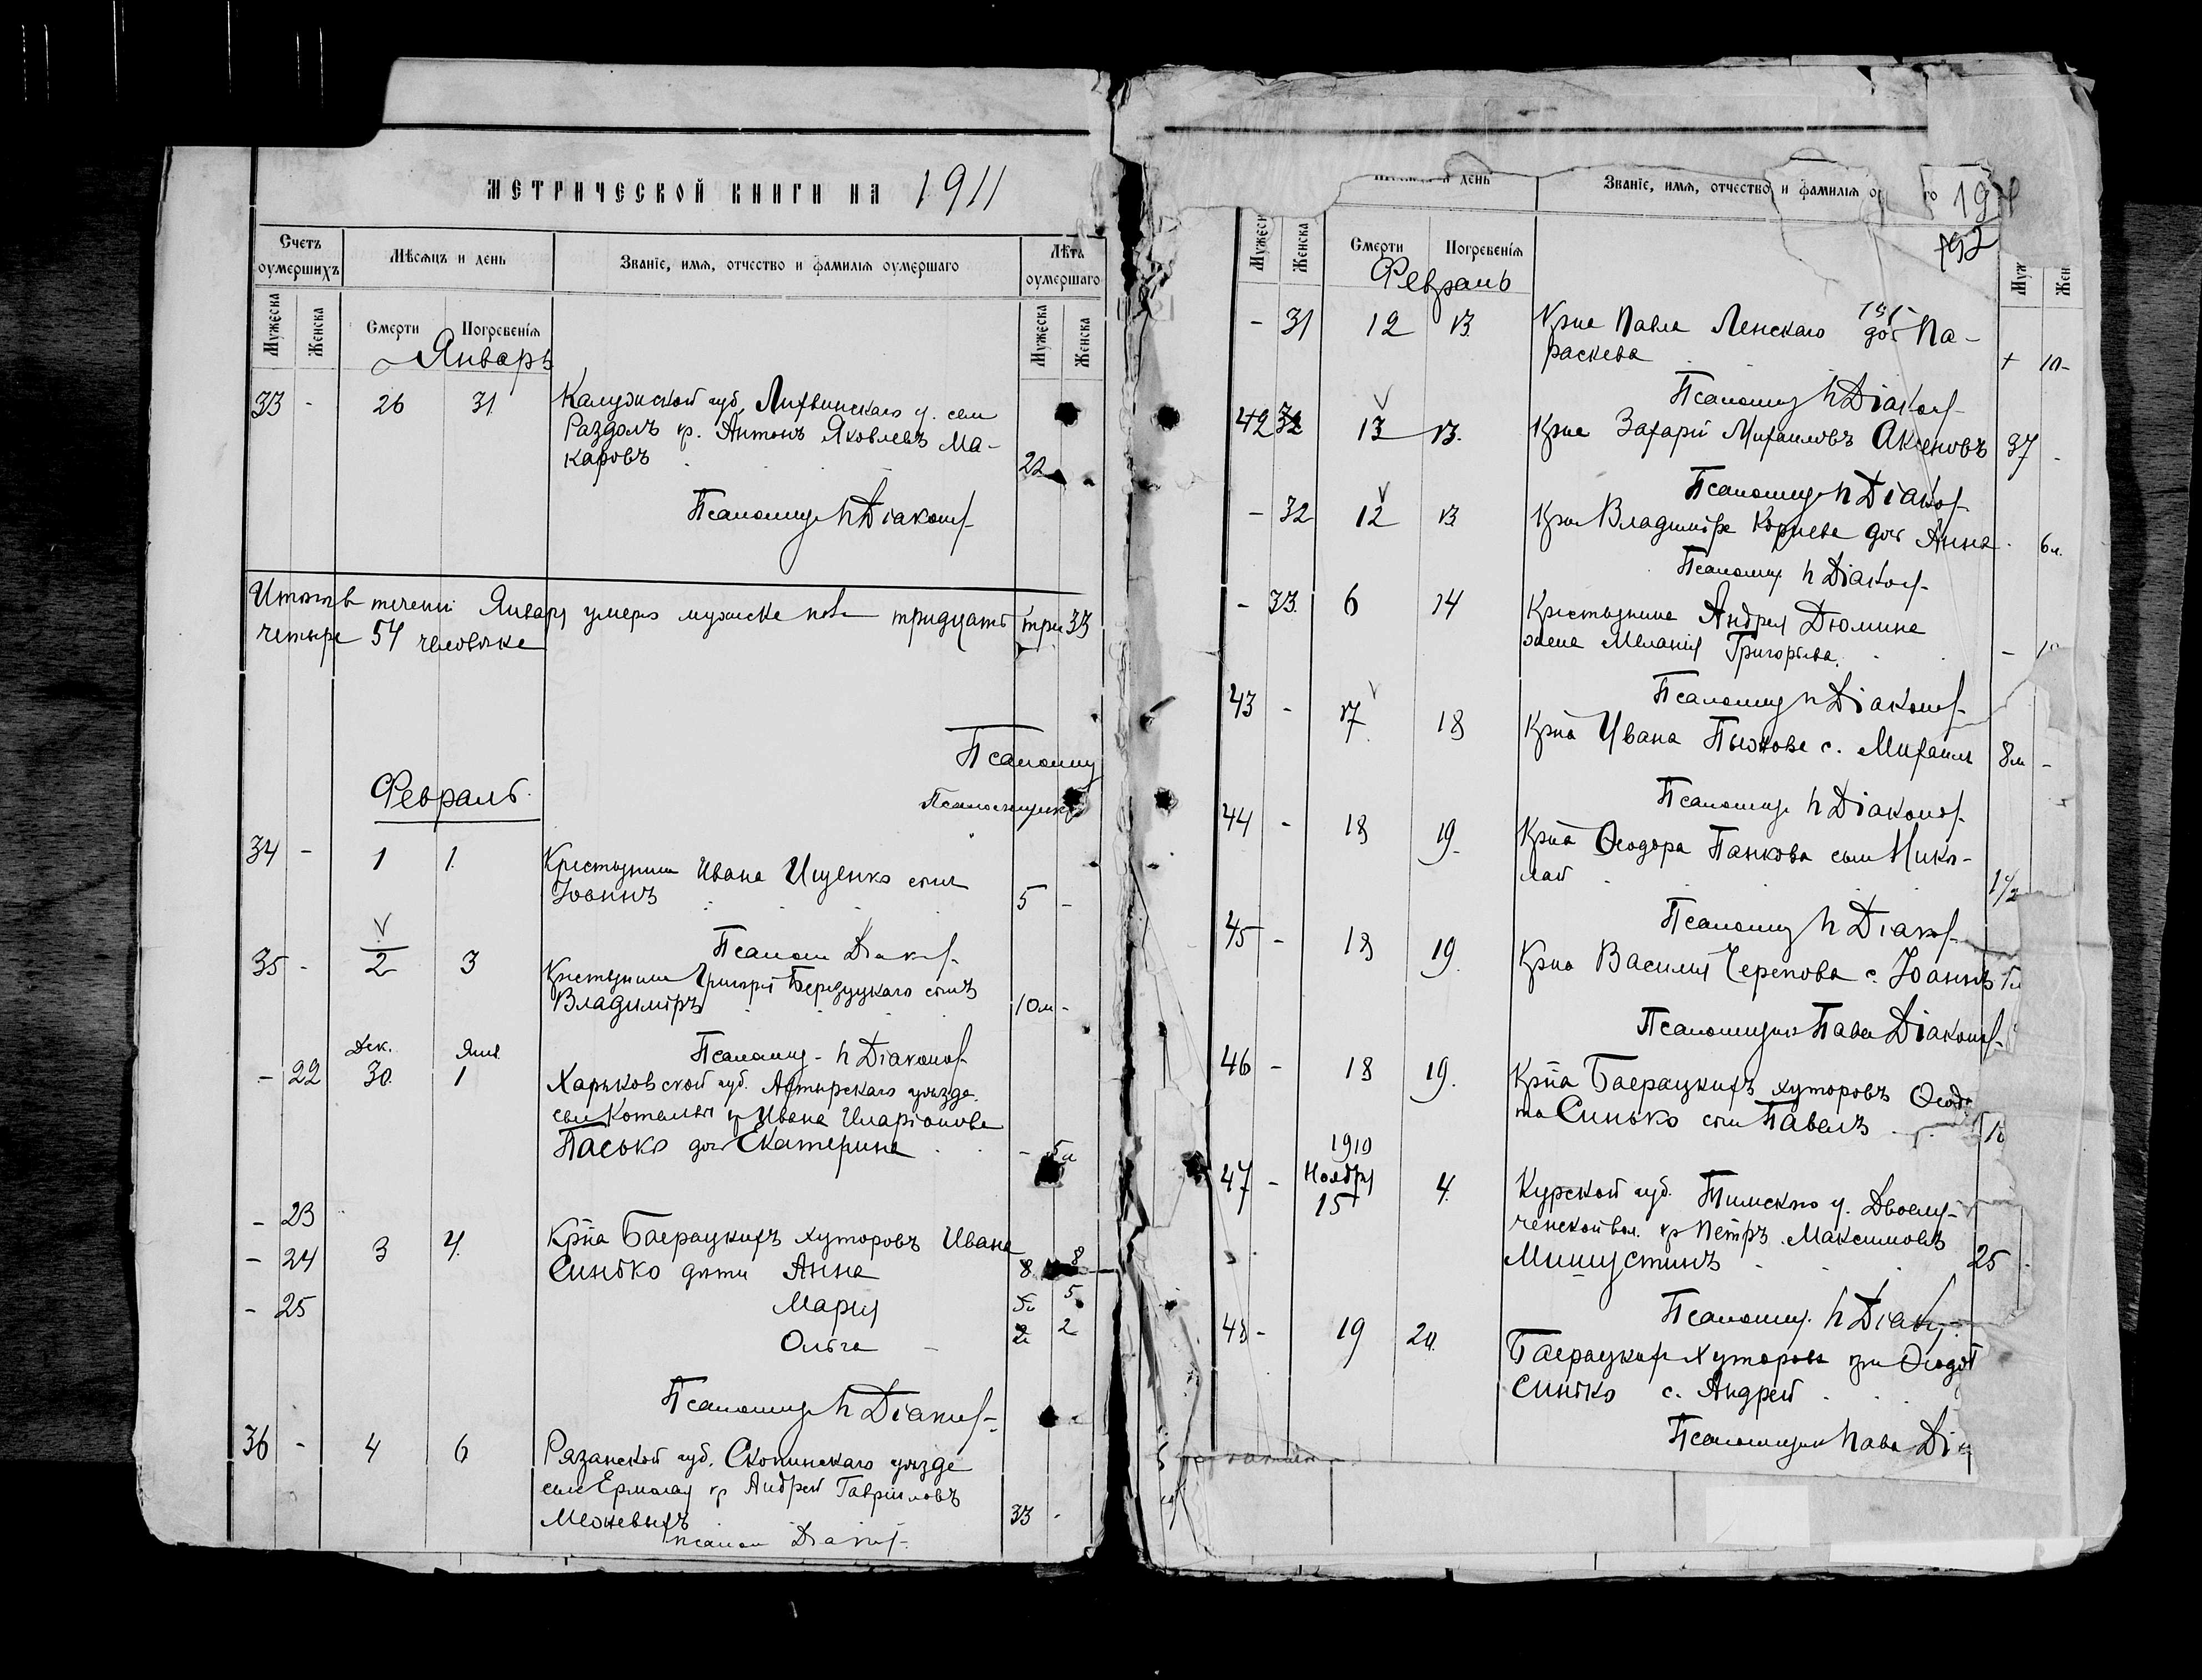 МЕТРИЧЕСКОЙ КНИГИ НА 1911
Счетъ оумершихъ
Мѣсяцъ и день
Званіе, имя, отчество и фамилія оумершаго
Лѣта оумершаго
Мужеска
Женска
Смерти
Погребенія
Мужеска
Женска
Январь
33 - 26 31 Калужской губ. Лихвинскаго у. села
Раздолъ кр. Антонъ Яковлевъ Ма-
каровъ 22
Псаломщ П Діаконов
Итого въ течении Января умерло мужска пола тридцать три 33
четыре 54 человѣка
Псаломщ
Февраль.
Псаломщикъ
34 - 1 1 Крестьянина Ивана Ищенко сынъ
Іоаннъ 5 -
Псалом Діак
35 - 2 3 Крестьянина Григорія сынъ
Владиміръ 10м -
Псаломщ П Діаконов
Дек. Янв.
- 22 30. 1 Харьковской губ. Ахтырскаго уѣзда.
села Котельвы кр Ивана Иларіонова
Пасько дочь Екатерина - 5м
- 23
- 24 3 4. Крна Баерацкихъ хуторовъ Ивана
Синько дѣти Анна 8 8
- 25 Марія 5 5
Ольга 2 2
Псаломщ П Діаконов
36 - 4 6 Рязанской губ. Скопинскаго уѣзда
села Ермолая кр Андрей Гавріиловъ
33 -
псалом Діак
день
Званіе, имя, отчество и фамилія о
го 19
192
191
Мужес
Женска
Смерти
Погребенія
Муж
Жен
Февраль
- 31 12 13. Крна Павла Ленскаго доч Па-
раскева + 10-
Псаломщ П Діаконов
42 32 13 13. Крна Захарій Михаиловъ Аксеновъ 37 -
Псаломщ П Діаков
- 32 12 13 Крна Владиміра Корнева дочь Анна 6м.
Псаломщ П Діаконов
- 33. 6 14 Крестьянина Андрея Дюмина
жена Меланія Григорьева. -
Псаломщ П Діаконов
43 - 17 18 Крна Ивана Пыжова с. Михаилъ 8м -
Псаломщ П Діаконов
44 - 18 19. Крна Ѳеодора Панкова сынъ Нико-
лай 1 1/2
Псаломщ П Діаков
45 - 18 19. Крна Василія Черепова с. Іоаннъ
Псаломщикъ Павел Діаконов
46 - 18 19. Крна Баерацкихъ хуторовъ Ѳеодо
та Синько сынъ Павелъ
1910
47 - Ноября 4. Курской губ. Тимскаго у. Двоелу-
15 ченской вол. кр Петръ Максимовъ
Мишустинъ 25
Псаломщ. П Діак
48 - 19 20. Баерацкихъ хуторовъ крна Ѳеодот
Синько с. Андрей
Псаломщикъ Павел Ді